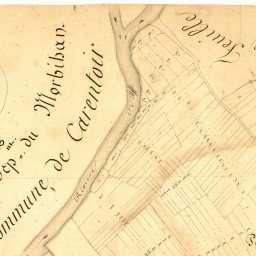 Dép. du Morbihan.
Commune de Carentoir
Rivière
Feuille